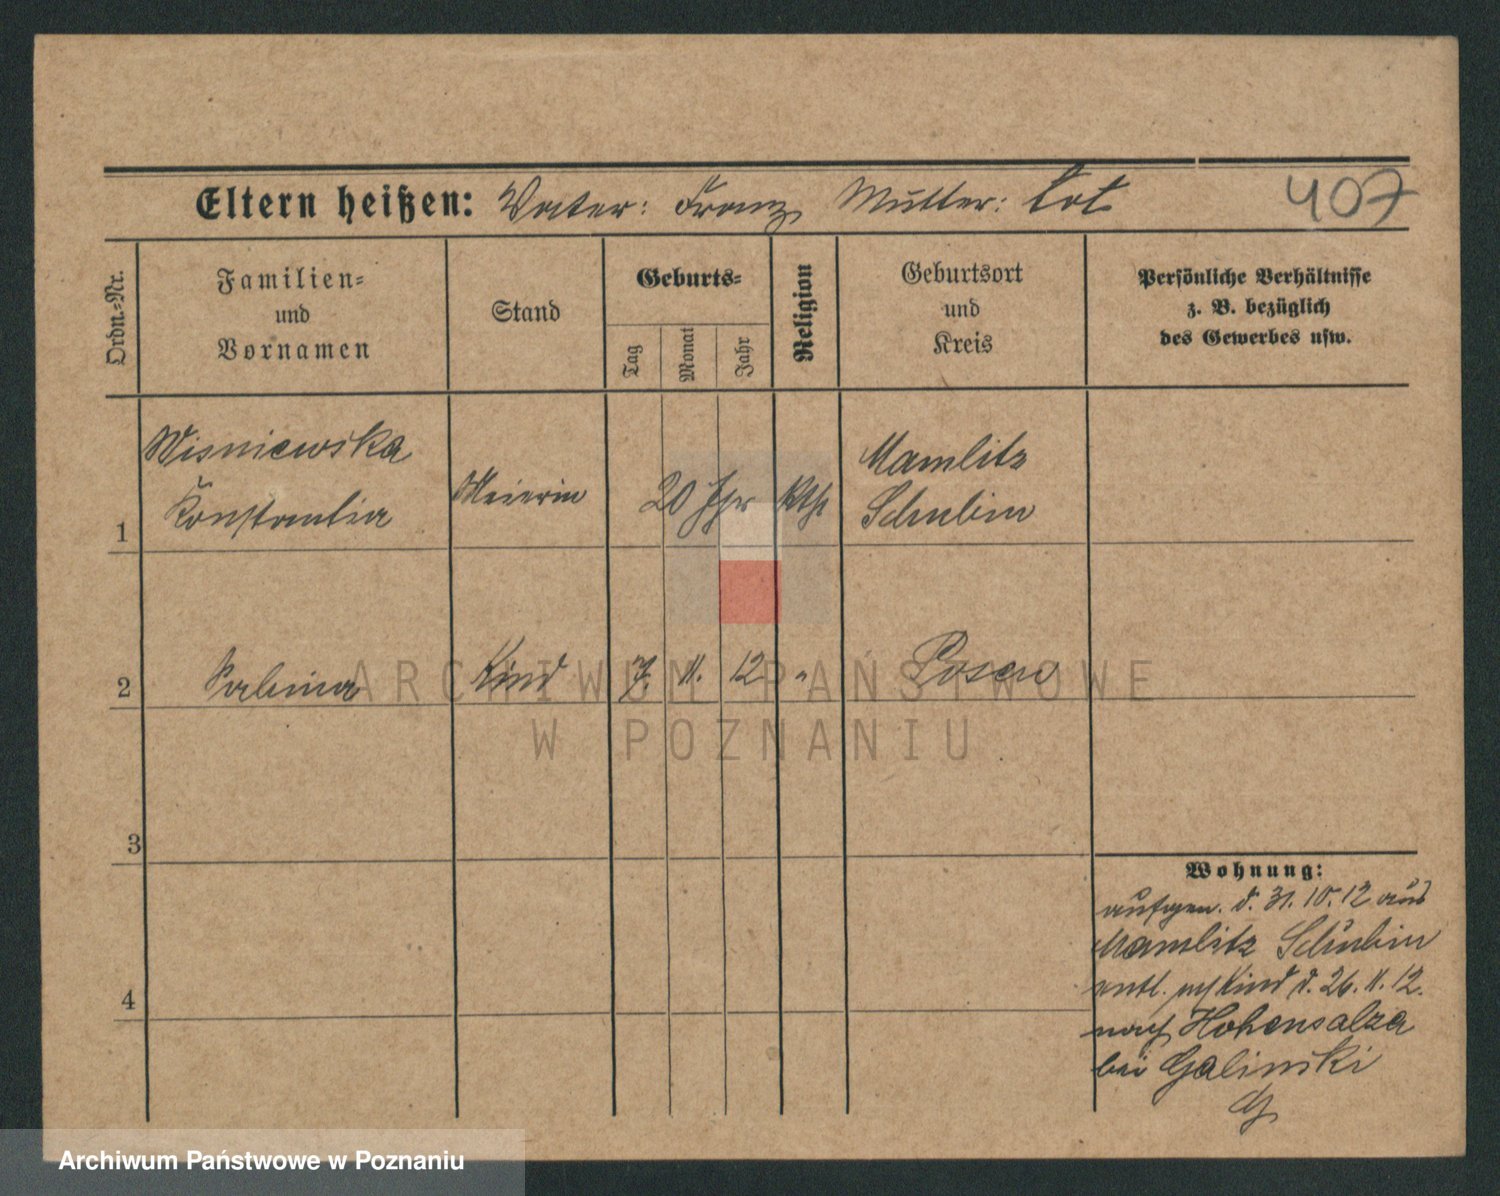 Eltern heißen: Vater: Franz Mutter: tot
407
Ordn.-Nr.
Familien-
und
Vornamen
Stand
Geburts-
Tag
Monat
Jahr
Religion
Geburtsort
und
Kreis
Persönliche Verhältnisse
z. B. bezüglich
des Gewerbes usw.
1
Wisniewska
Konstantia
Meierin
20 Jhr
kth
Mamlitz
Schubin
2
Sabina
Kind
7. 11. 12
"
Posen
3
4
Wohnung:
aufgen. d. 31. 10. 12 aus
Mamlitz Schubin
entl. Kind d. 26. 11. 12.
nach Hohensalza
bei Galinski
ARCHIWUM PAŃSTWOWE
W POZNANIU
Archiwum Państwowe w Poznaniu